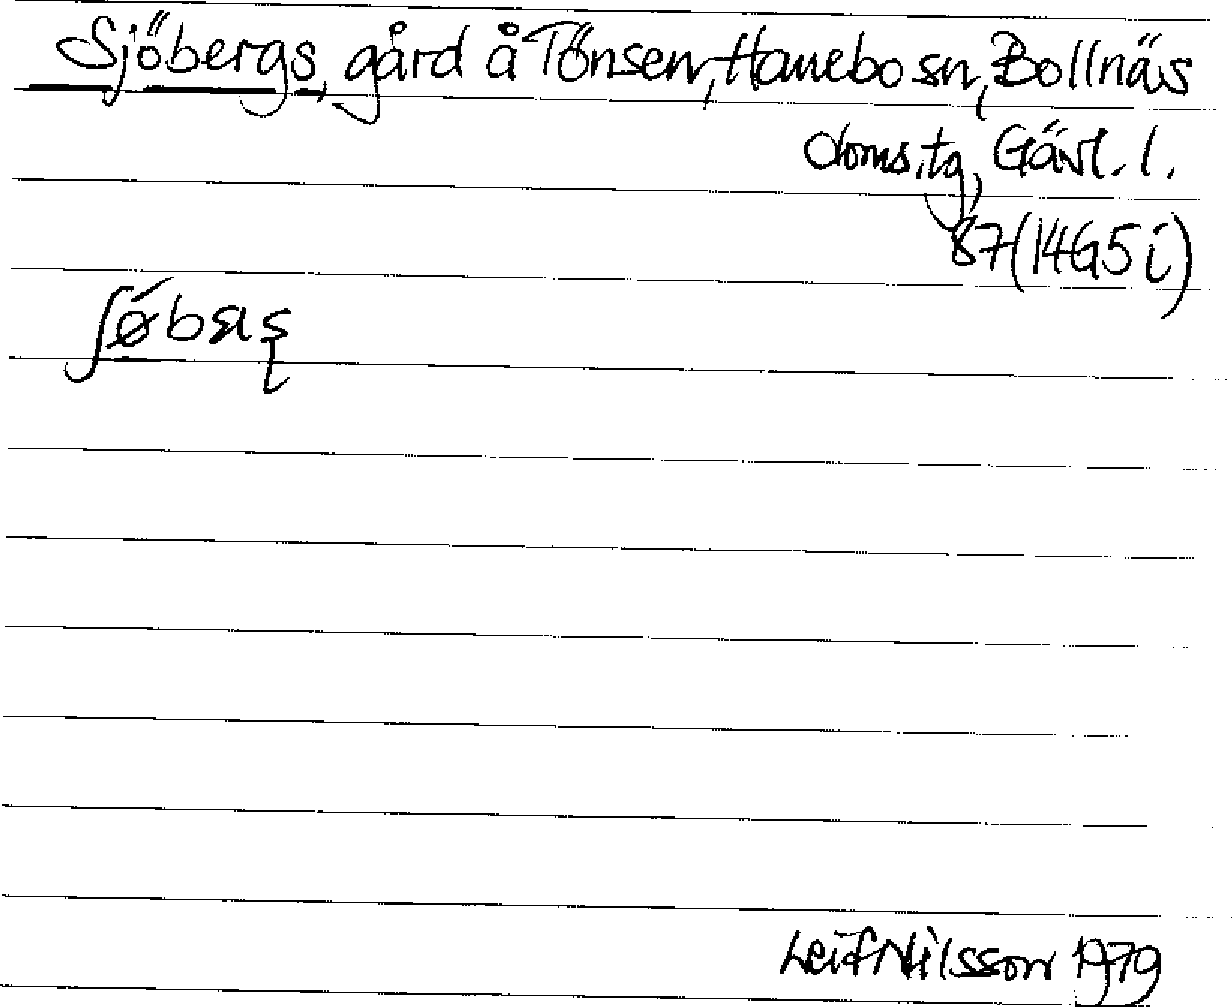 Sjöbergs, gård å Tönsen, Hanebo sn, Bollnäs
doms.tg, Gävl. l.
87(14G5i)
Leif Nilsson 1979